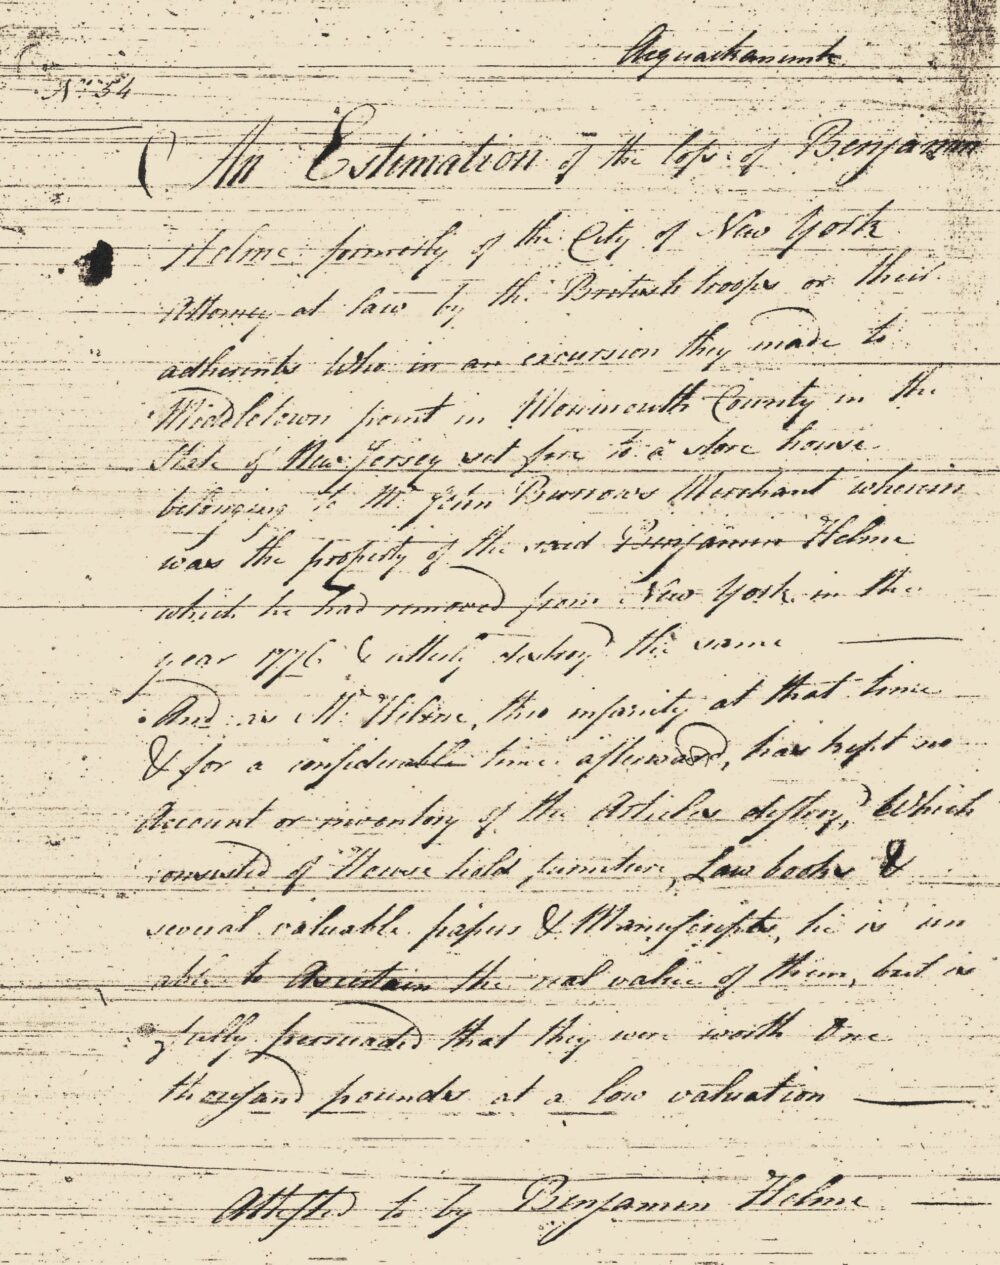 Acquackanunk
No. 54
An Estimation of the loss of Benjamin
Helme formerly of the City of New York
Attorney at law by the British troops or their
adherents Who in an excursion they made to
Middletown point in Monmouth County in the
State of New Jersey set fire to a store house
belonging to Mr. John Burrows Merchant wherein
was the property of the said Benjamin Helme
which he had removed from New York in the
year 1776 & utterly destroyd the same
And as Mr. Helme, thro insanity at that time
& for a considerable time afterward, has kept no
Account or inventory of the Articles destroyd, Which
consisted of House hold furniture, Law books &
several valuable papers & Manuscripts, he is un
able to Ascertain the real value of them, but is
fully persuaded that they were worth One
thousand pounds at a low valuation
Attested to by Benjamin Helme